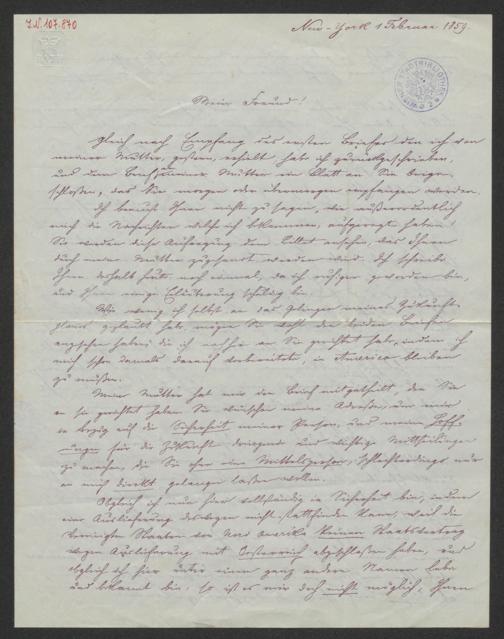 I.N. 107.870
New-York 1 Februar 1859.
WIENER STADTBIBLIOTHEK
Mein Freund!
Gleich nach Empfang des ersten Briefes den ich von
meiner Mutter, gestern, erhielt habe ich zurückgeschrieben,
und dem Brief meiner Mutter ein Blatt an Sie beige-
schlossen, das Sie morgen oder übermorgen empfangen werden.
Ich brauch Ihnen nicht zu sagen, wie außerordentlich
mich die Nachrichten welche ich bekommen, aufgeregt haben.
Sie werden diese Aufregung dem Billet ansehen, das Ihnen
durch meine Mutter zugesandt werden wird. Ich schreibe
Ihnen deshalb heute noch einmal, da ich ruhiger geworden bin,
und Ihnen einige Erläuterung schuldig bin.
Wie wenig ich selbst an das Gelingen meines
geglaubt habe, mögen Sie wohl den beiden Briefen
entnehmen haben, die ich vorher an Sie gerichtet habe, indem ich
mich schon damals darauf vorbereitete, in America bleiben
zu müssen.
Meine Mutter hat mir den Brief mitgetheilt den Sie
an sie gerichtet haben. Sie wünschen meine Adresse, um mir
in Bezug auf die Sicherheit meiner Person, und meine Hoff-
nungen für die Zukunft dringende und wichtige Mittheilungen
zu machen, die Sie ohne eine Mittelsperson, schlechterdings nur
an mich direkt gelangen lassen wollen.
Obgleich ich nun hier vollständig in Sicherheit bin, indem
eine Auslieferung deswegen nicht stattfinden kann, weil die
Vereinigten Staaten von Nord America keinen Staatsvertrag
wegen Auslieferung mit Oesterreich abgeschlossen haben, und
obgleich ich hier unter einem ganz andern Namen lebe
und bekannt bin, so ist es mir doch nicht möglich, Ihnen